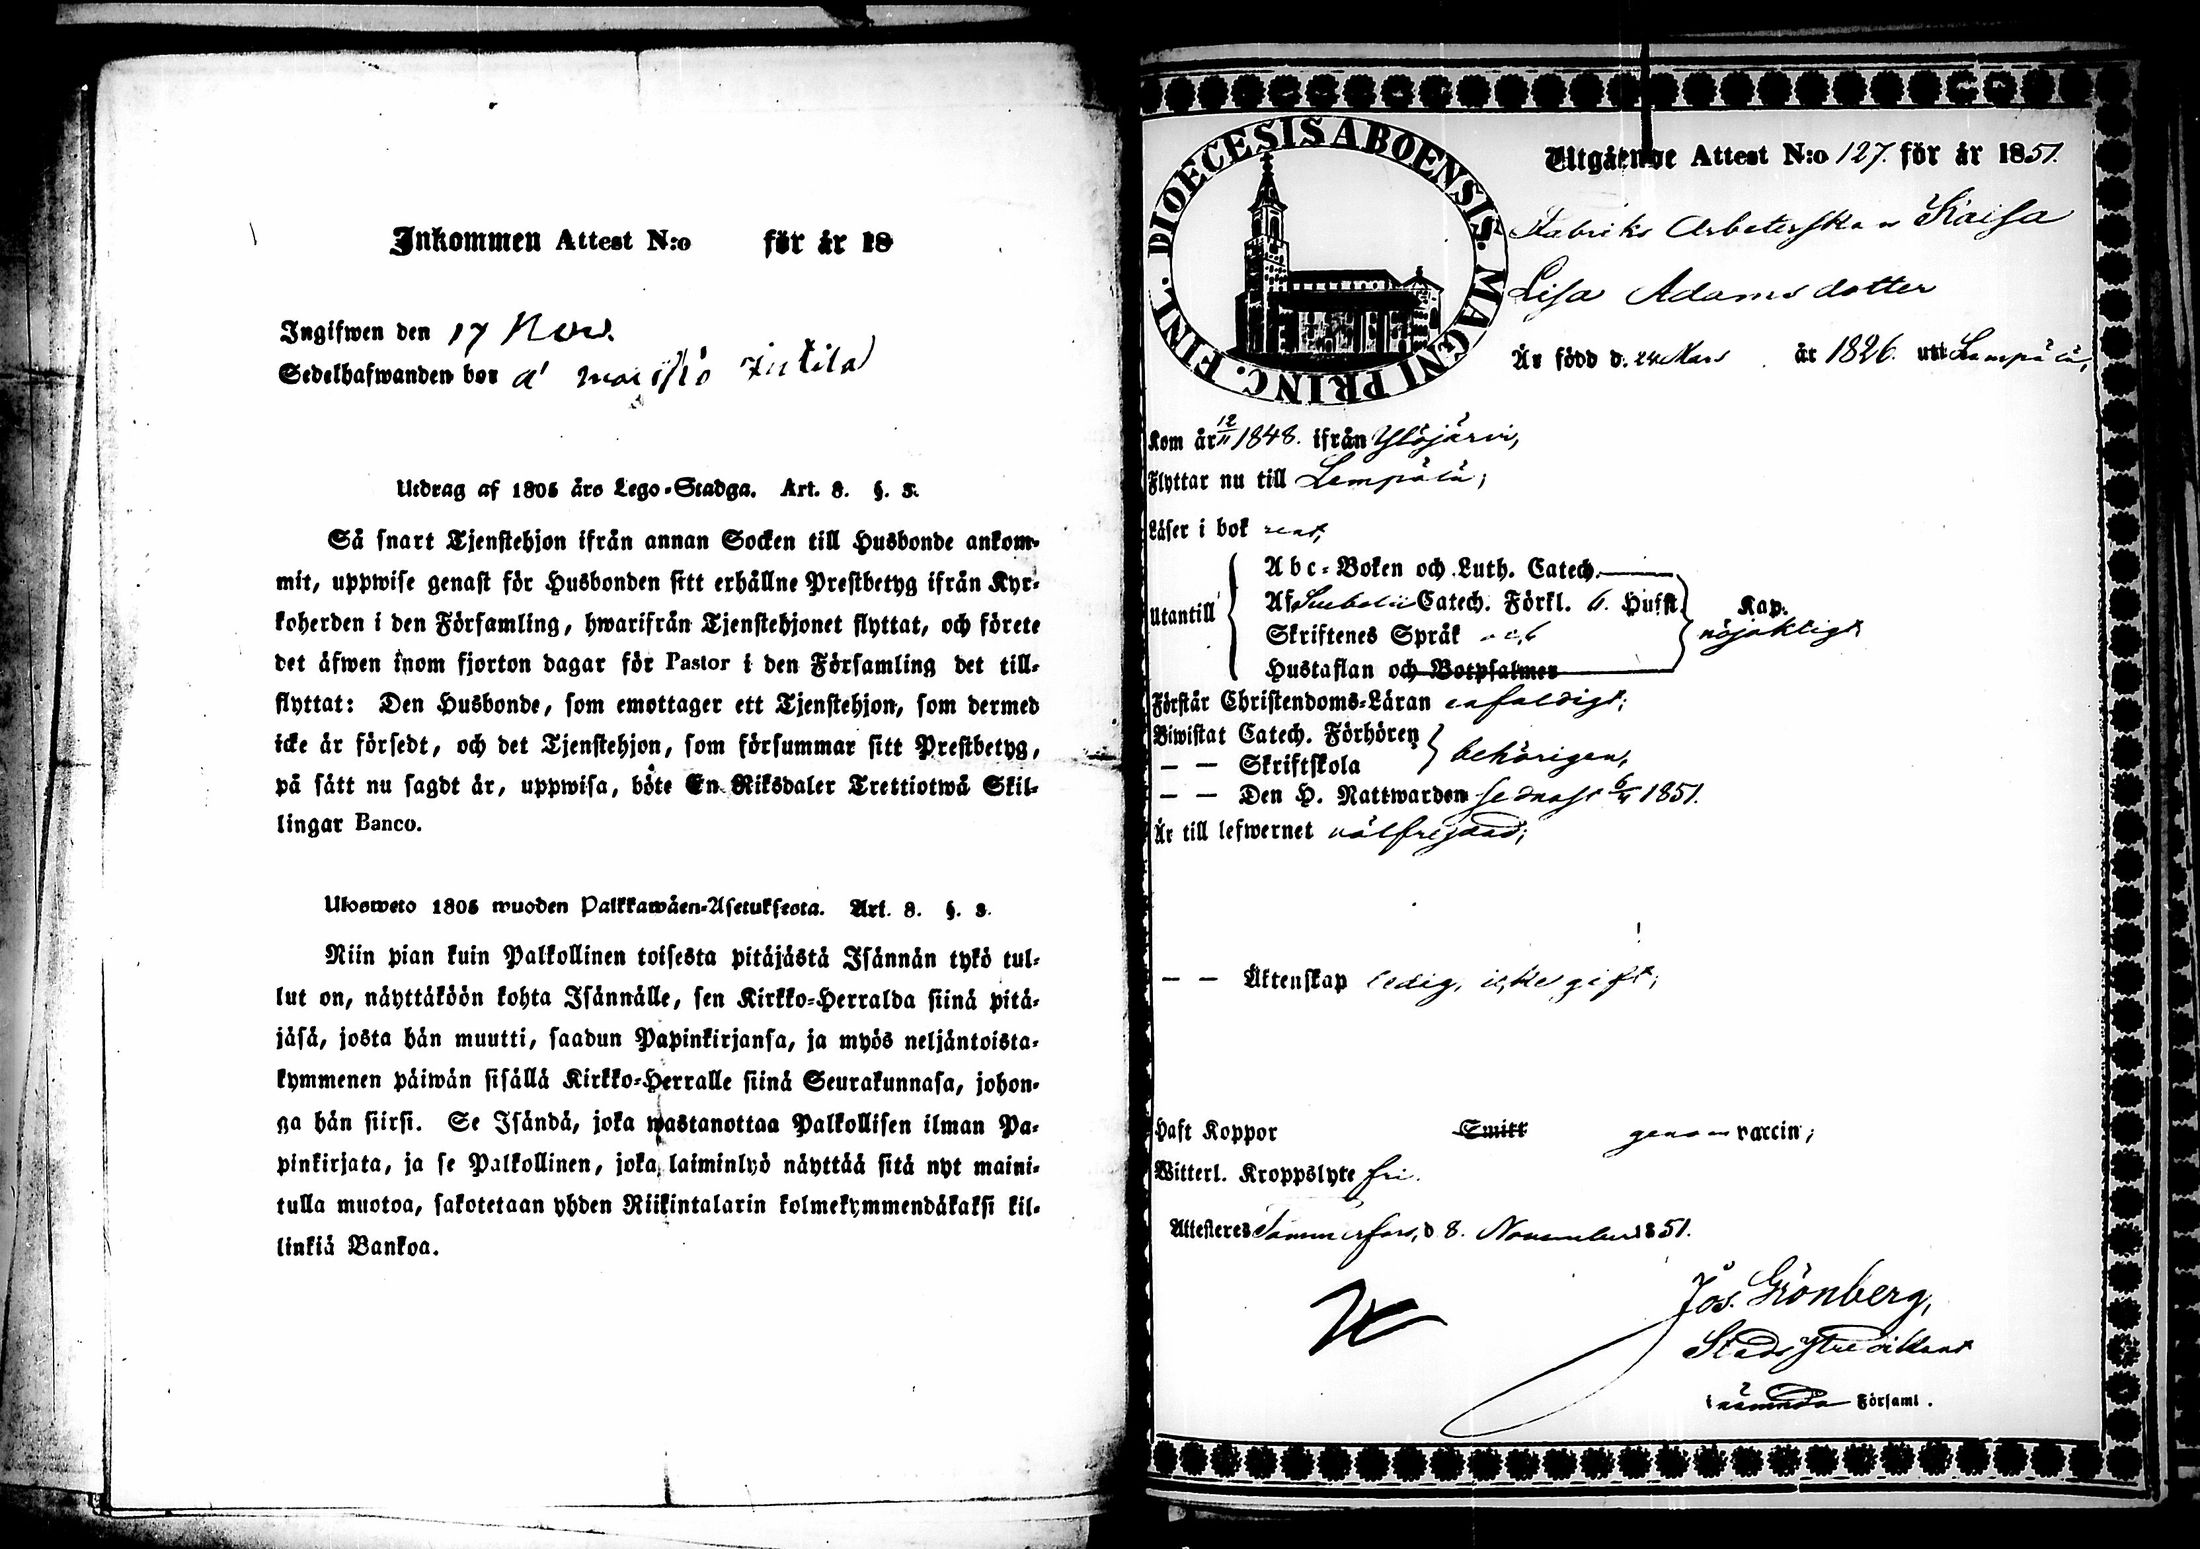 Inkommen Attest N:o för år 18
Ingifwen den 17 Nov.
Sedelhafwanden bor å
Utdrag af 1805 års Lego-Stadga. Art. 8. §. 3.
Så snart Tjenstehjon ifrån annan Socken till Husbonde ankom-
mit, uppwise genast för Husbonden sitt erhållne Prestbetyg ifrån Kyr-
koherden i den Församling, hwarifrån Tjenstehjonet flyttat, och förete
det äfwen inom fjorton dagar för Pastor i den Församling det till-
flyttat: Den Husbonde, som emottager ett Tjenstehjon, som dermed
icke är försedt, och det Tjenstehjon, som försummar sitt Prestbetyg,
på sätt nu sagdt är, uppwisa, böte En Riksdaler Trettiotwå Skil-
lingar Banco.
Ulosweto 1805 wuoden Palkkawäen-Asetuksesta. Art. 8. §. 3.
Niin pian kuin Palkollinen toisesta pitäjästä Isännän tykö tul-
lut on, näyttäköön kohta Isännälle, sen Kirkko-Herralda siinä pitä-
jäsä, josta hän muutti, saadun Papinkirjansa, ja myös neljäntoista-
kymmenen päiwän sisällä Kirkko-Herralle siinä Seurakunnasa, johon-
ga hän siirsi. Se Isändä, joka wastanottaa Palkollisen ilman Pa-
pinkirjata, ja se Palkollinen, joka laiminlyö näyttää sitä nyt maini-
tulla muotoa, sakotetaan yhden Riikintalarin kolmekymmendäkaksi kil-
linkiä Bankoa.
DIOECESIS ABOENSIS. MAGNI PRINC. FINL.
Utgående Attest N:o 127. för år 1851.
Fabriks Arbeterskan Kaisa
Lisa Adamsdotter
Är född d. 24 Mars år 1826. uti Lempälä,
Kom år 12/11 1848. ifrån Ylöjärvi,
Flyttar nu till Lempälä;
Läser i bok rent,
Utantill
Abc-Boken och Luth. Catech.
Af Svebelii Catech. Förkl. 6. Hufst. Kap.
Skriftenes Språk och nöjaktigt
Hustaflan och Botpsalmer
Förstår Christendoms-Läran enfaldigt;
Biwistat Catech. Förhören
— — Skriftskola behörigen,
— — Den H. Nattwarden sednast 6/4 1851.
Är till lefwernet välfrejdad;
— — Äktenskap ledig, icke gift;
Haft Koppor Smitt genom vaccin;
Witterl. Kroppslyte fri.
Attesteras Tammerfors, d 8. November 1851.
Jos. Grönberg,
i nämnda Församl.